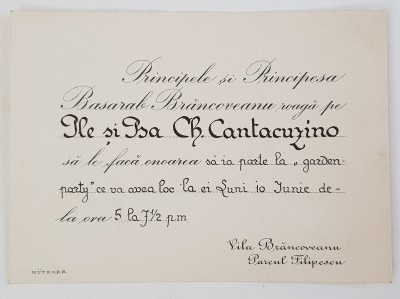 Principele și Principesa
Basarab Brâncoveanu, roagă pe
Ple și Psa Ch. Cantacuzino
să le facă onoarea să ia parte la „garden-
party" ce va avea loc la ei Luni 10 Iunie de-
la ora 5 la 7½ p.m
Vila Brâncoveanu
Parcul Filipescu